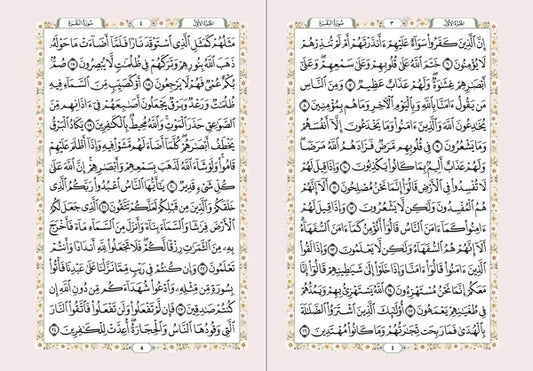 الجُزْءُ الأَوَّلُ ٣ سُورَةُ البَقَرَةِ
إِنَّ الَّذِينَ كَفَرُوا سَوَاءٌ عَلَيْهِمْ ءَأَنْذَرْتَهُمْ أَمْ لَمْ تُنْذِرْهُمْ
لَا يُؤْمِنُونَ ٦ خَتَمَ اللَّهُ عَلَىٰ قُلُوبِهِمْ وَعَلَىٰ سَمْعِهِمْ وَعَلَىٰ
أَبْصَارِهِمْ غِشَاوَةٌ وَلَهُمْ عَذَابٌ عَظِيمٌ ٧ وَمِنَ النَّاسِ
مَنْ يَقُولُ ءَامَنَّا بِاللَّهِ وَبِالْيَوْمِ الْآخِرِ وَمَا هُمْ بِمُؤْمِنِينَ ٨
يُخَادِعُونَ اللَّهَ وَالَّذِينَ ءَامَنُوا وَمَا يَخْدَعُونَ إِلَّا أَنْفُسَهُمْ
وَمَا يَشْعُرُونَ ٩ فِي قُلُوبِهِمْ مَرَضٌ فَزَادَهُمُ اللَّهُ مَرَضًا
وَلَهُمْ عَذَابٌ أَلِيمٌ بِمَا كَانُوا يَكْذِبُونَ ١٠ وَإِذَا قِيلَ لَهُمْ
لَا تُفْسِدُوا فِي الْأَرْضِ قَالُوا إِنَّمَا نَحْنُ مُصْلِحُونَ ١١ أَلَا إِنَّهُمْ
هُمُ الْمُفْسِدُونَ وَلَٰكِنْ لَا يَشْعُرُونَ ١٢ وَإِذَا قِيلَ لَهُمْ
ءَامِنُوا كَمَا ءَامَنَ النَّاسُ قَالُوا أَنُؤْمِنُ كَمَا ءَامَنَ السُّفَهَاءُ
أَلَا إِنَّهُمْ هُمُ السُّفَهَاءُ وَلَٰكِنْ لَا يَعْلَمُونَ ١٣ وَإِذَا لَقُوا
الَّذِينَ ءَامَنُوا قَالُوا ءَامَنَّا وَإِذَا خَلَوْا إِلَىٰ شَيَاطِينِهِمْ قَالُوا إِنَّا
مَعَكُمْ إِنَّمَا نَحْنُ مُسْتَهْزِءُونَ ١٤ اللَّهُ يَسْتَهْزِئُ بِهِمْ وَيَمُدُّهُمْ
فِي طُغْيَانِهِمْ يَعْمَهُونَ ١٥ أُولَٰئِكَ الَّذِينَ اشْتَرَوُا الضَّلَالَةَ
بِالْهُدَىٰ فَمَا رَبِحَتْ تِجَارَتُهُمْ وَمَا كَانُوا مُهْتَدِينَ ١٦
3
الجُزْءُ الأَوَّلُ ٤ سُورَةُ البَقَرَةِ
مَثَلُهُمْ كَمَثَلِ الَّذِي اسْتَوْقَدَ نَارًا فَلَمَّا أَضَاءَتْ مَا حَوْلَهُ
ذَهَبَ اللَّهُ بِنُورِهِمْ وَتَرَكَهُمْ فِي ظُلُمَاتٍ لَا يُبْصِرُونَ ١٧ صُمٌّ
بُكْمٌ عُمْيٌ فَهُمْ لَا يَرْجِعُونَ ١٨ أَوْ كَصَيِّبٍ مِنَ السَّمَاءِ فِيهِ
ظُلُمَاتٌ وَرَعْدٌ وَبَرْقٌ يَجْعَلُونَ أَصَابِعَهُمْ فِي ءَاذَانِهِمْ مِنَ
الصَّوَاعِقِ حَذَرَ الْمَوْتِ وَاللَّهُ مُحِيطٌ بِالْكَافِرِينَ ١٩ يَكَادُ الْبَرْقُ
يَخْطَفُ أَبْصَارَهُمْ كُلَّمَا أَضَاءَ لَهُمْ مَشَوْا فِيهِ وَإِذَا أَظْلَمَ عَلَيْهِمْ
قَامُوا وَلَوْ شَاءَ اللَّهُ لَذَهَبَ بِسَمْعِهِمْ وَأَبْصَارِهِمْ إِنَّ اللَّهَ عَلَىٰ
كُلِّ شَيْءٍ قَدِيرٌ ٢٠ يَا أَيُّهَا النَّاسُ اعْبُدُوا رَبَّكُمُ الَّذِي
خَلَقَكُمْ وَالَّذِينَ مِنْ قَبْلِكُمْ لَعَلَّكُمْ تَتَّقُونَ ٢١ الَّذِي جَعَلَ لَكُمُ
الْأَرْضَ فِرَاشًا وَالسَّمَاءَ بِنَاءً وَأَنْزَلَ مِنَ السَّمَاءِ مَاءً فَأَخْرَجَ
بِهِ مِنَ الثَّمَرَاتِ رِزْقًا لَكُمْ فَلَا تَجْعَلُوا لِلَّهِ أَنْدَادًا وَأَنْتُمْ
تَعْلَمُونَ ٢٢ وَإِنْ كُنْتُمْ فِي رَيْبٍ مِمَّا نَزَّلْنَا عَلَىٰ عَبْدِنَا فَأْتُوا
بِسُورَةٍ مِنْ مِثْلِهِ وَادْعُوا شُهَدَاءَكُمْ مِنْ دُونِ اللَّهِ إِنْ
كُنْتُمْ صَادِقِينَ ٢٣ فَإِنْ لَمْ تَفْعَلُوا وَلَنْ تَفْعَلُوا فَاتَّقُوا النَّارَ
الَّتِي وَقُودُهَا النَّاسُ وَالْحِجَارَةُ أُعِدَّتْ لِلْكَافِرِينَ ٢٤
4